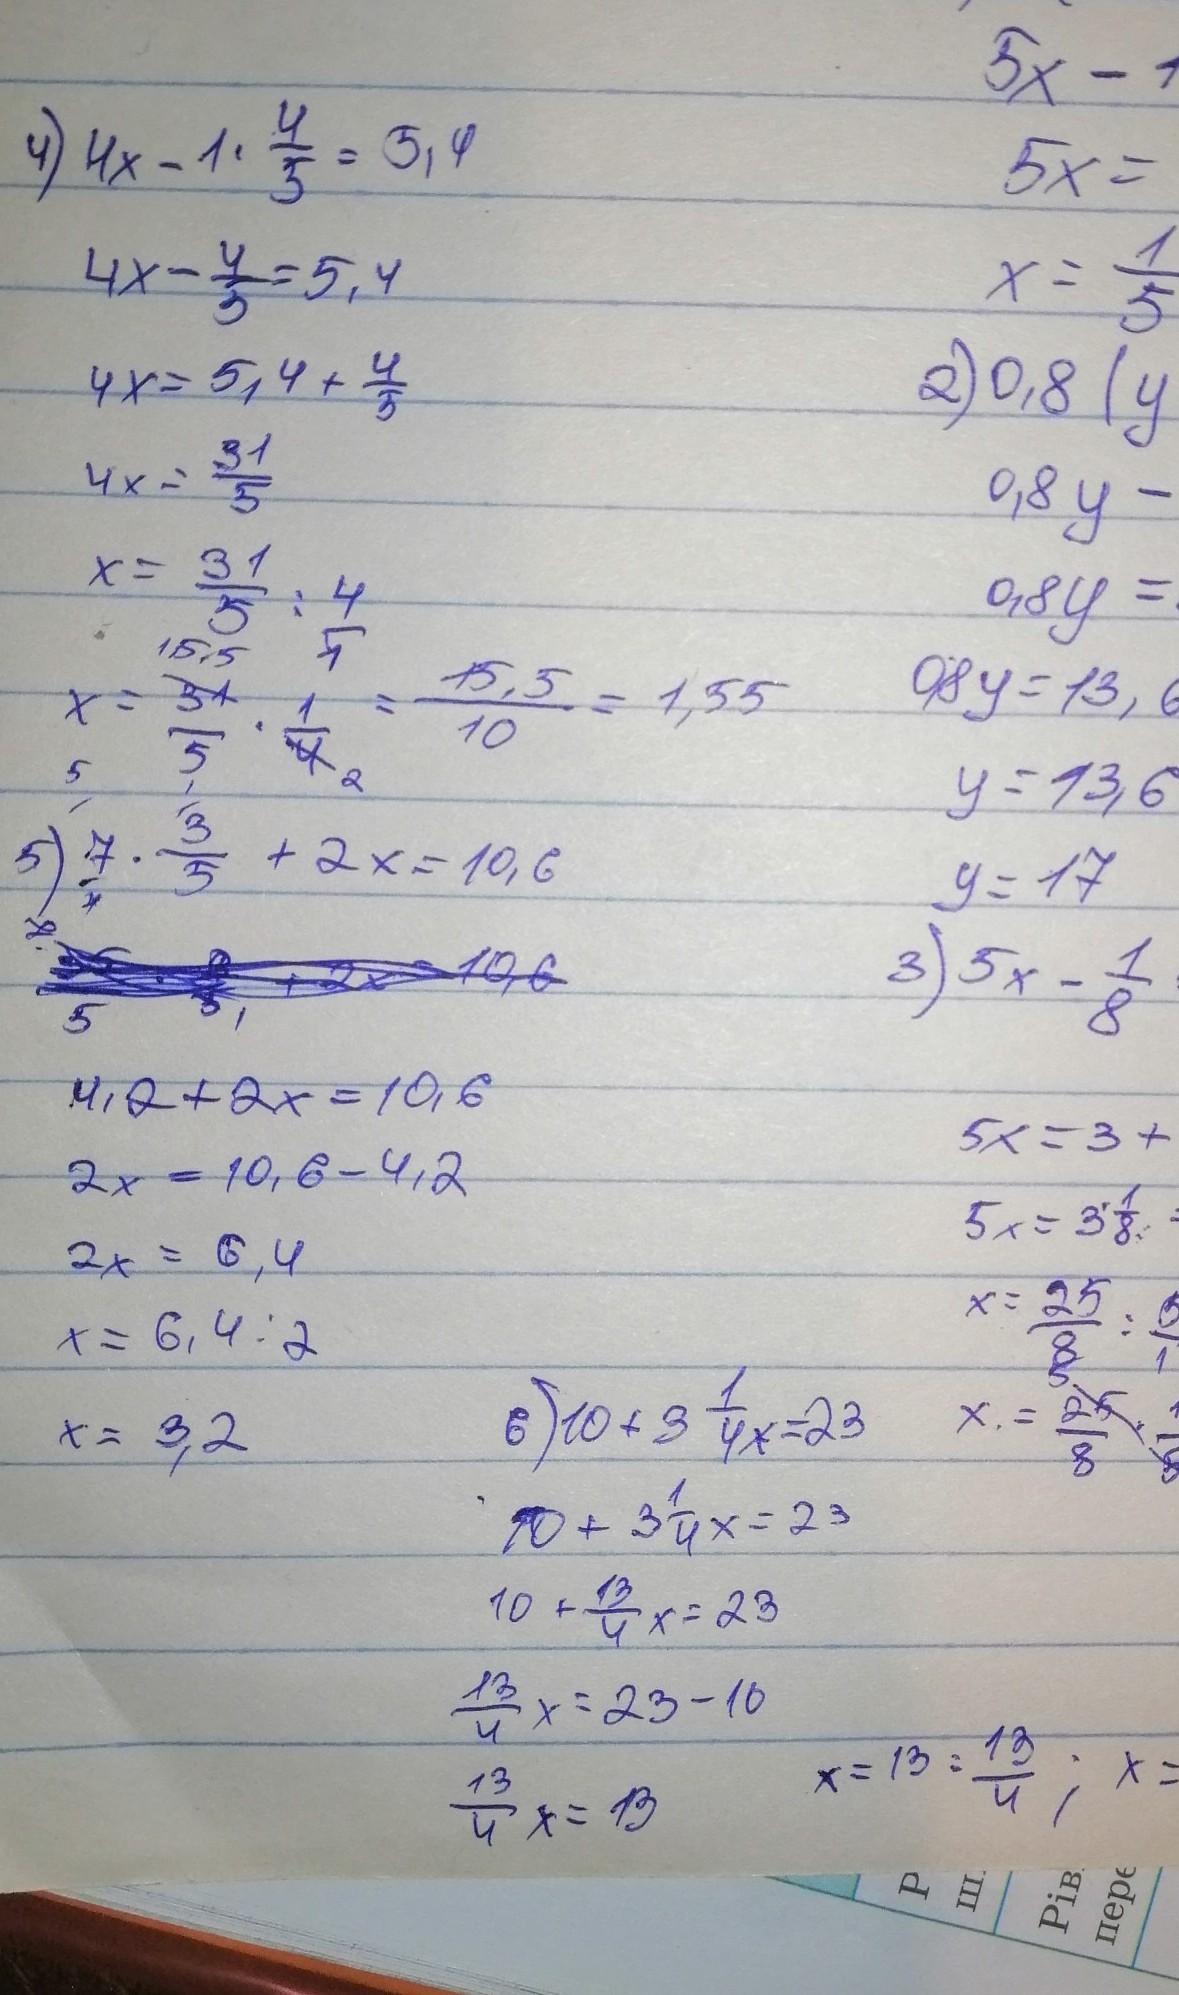 4) 4x - 1 · 4/5 = 5,4
4x - 4/5 = 5,4
4x = 5,4 + 4/5
4x = 31/5
x = 31/5 : 4/1
x = 31/5 · 1/4 = 15,5/10 = 1,55
15,5
2
5) 7/1 · 3/5 + 2x = 10,6
+ 2x = 10,6
4,2 + 2x = 10,6
2x = 10,6 - 4,2
2x = 6,4
x = 6,4 : 2
x = 3,2
6) 10 + 3 1/4 x = 23
10 + 3 1/4 x = 23
10 + 13/4 x = 23
13/4 x = 23 - 10
13/4 x = 13
x = 13 : 13/4 ; x =
5x - 1
5x =
x = 1/5
2) 0,8 (y
0,8y -
0,8y =
0,8y = 13,6
y = 13,6
y = 17
3) 5x - 1/8
5x = 3 +
5x = 3 1/8 =
x = 25/8 : 5/1
x = 25/8 · 1/5
Р
ш
Рів
пере